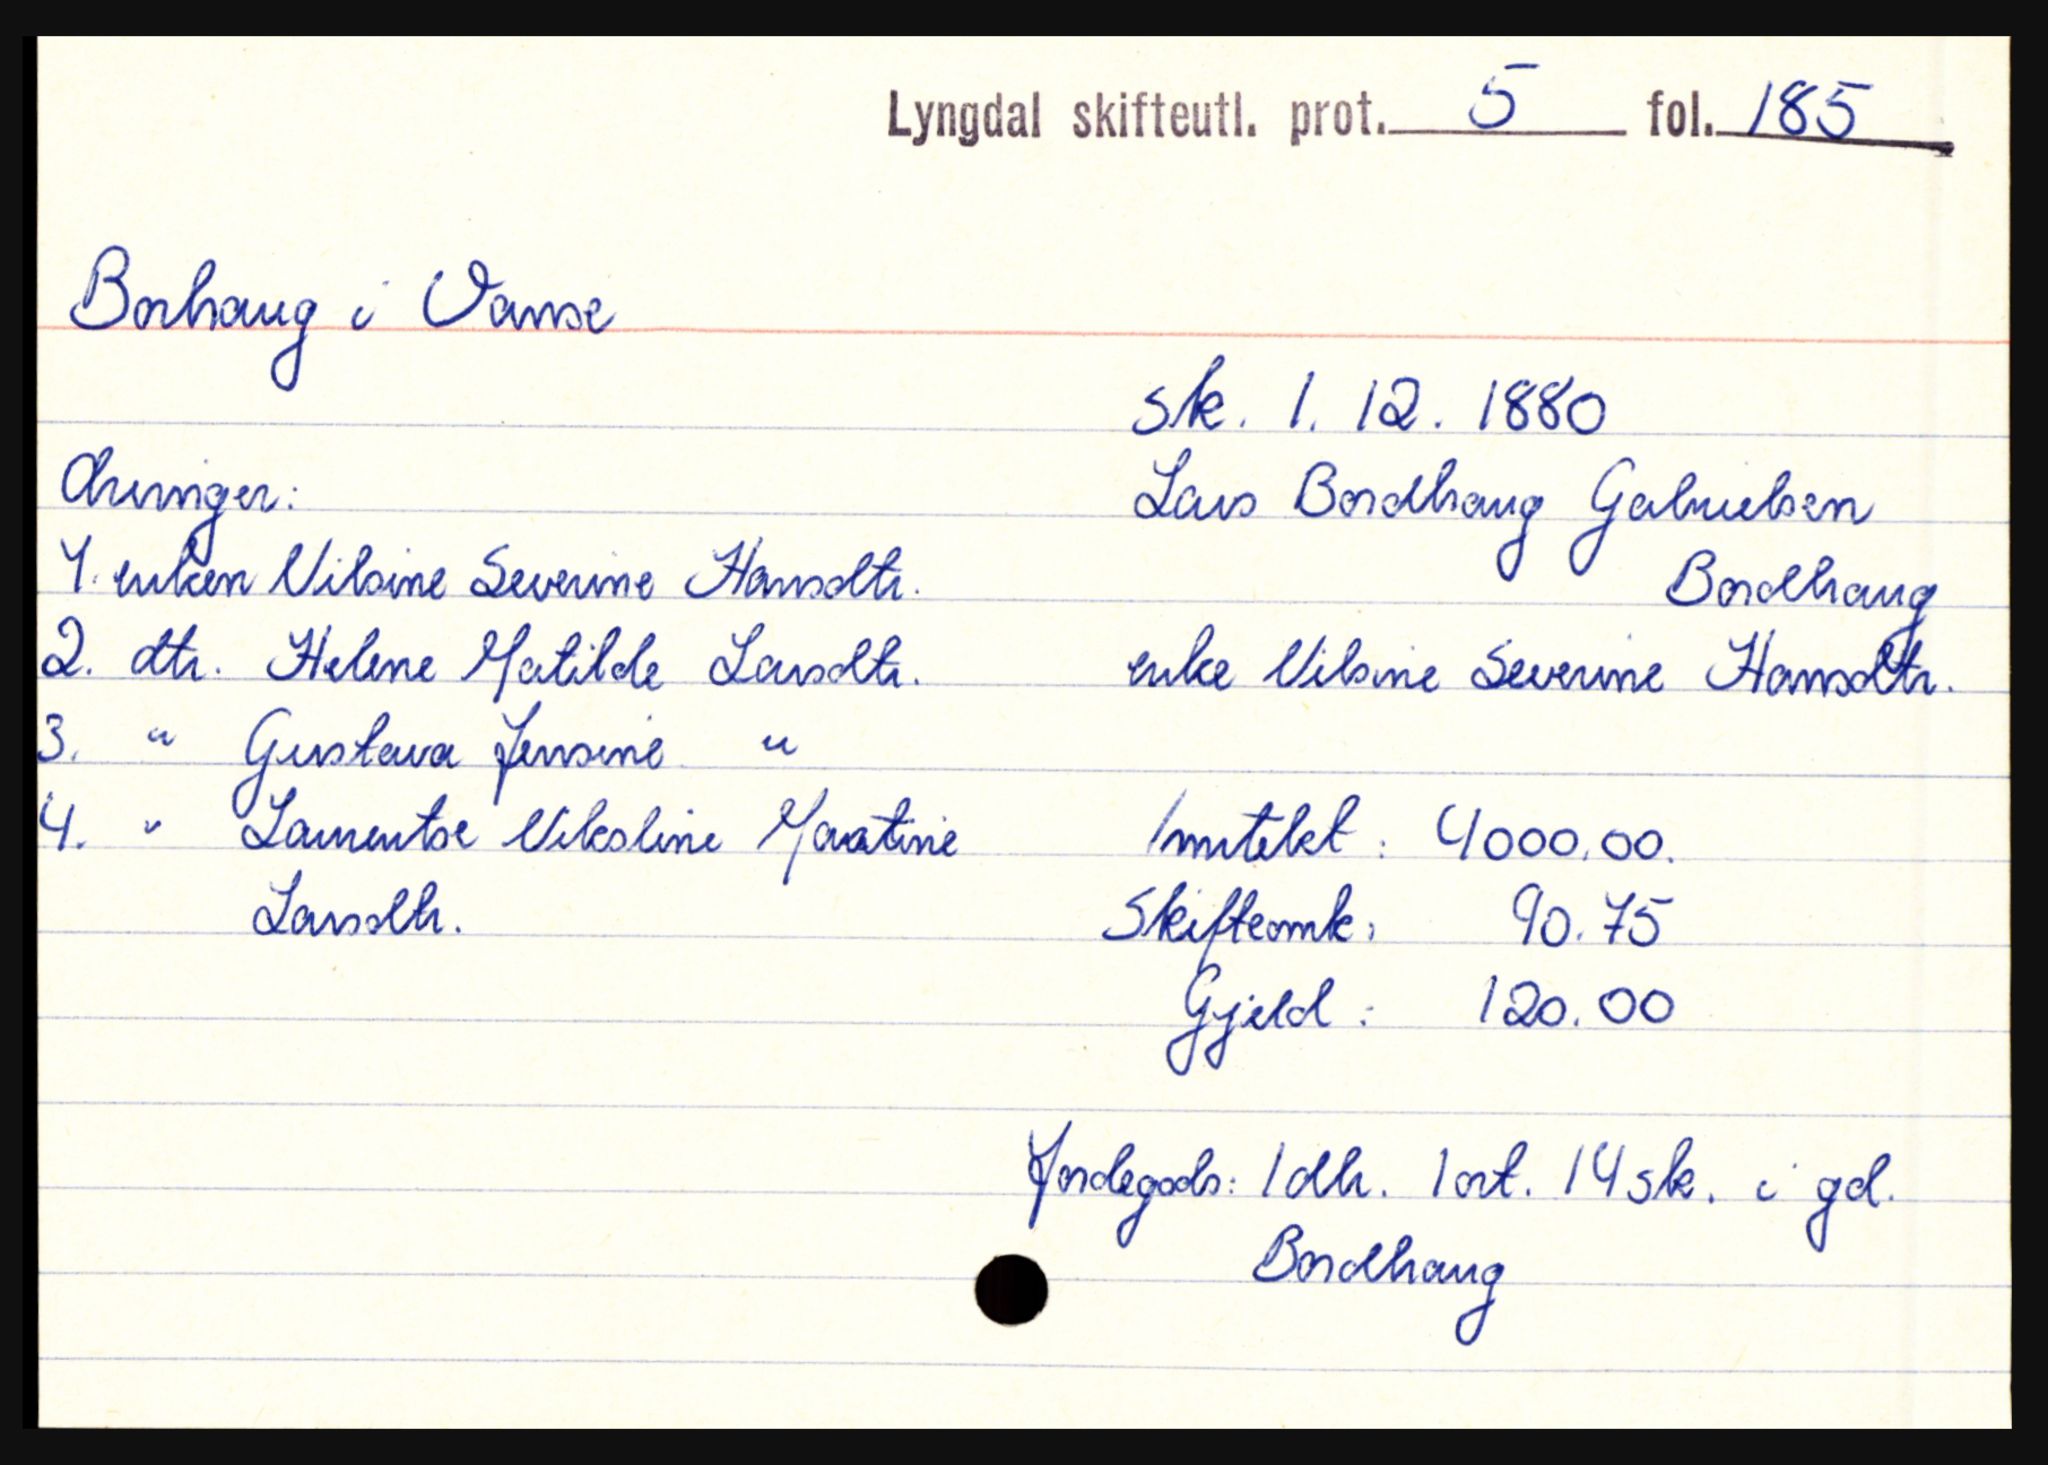 Lyngdal skifteutl. prot. 5 fol. 185
Borhaug i Vanse
sk. 1. 12. 1880
Arvinger:
Lars Bordhaug Gabrielsen
Bordhaug
1. enken Vilsine Severine Hansdtr.
2. dtr. Helene Matilde Larsdtr.
enke Vilsine Severine Hansdtr.
3. " Gustava Jensine "
4. " Laurentse Vikoline Martine
Larsdtr.
Inntekt: 4000.00.
Skifteomk: 90.75
Gjeld: 120.00
Jordegods: 1 dlr. 1 ort. 14 sk. i gd.
Bordhaug